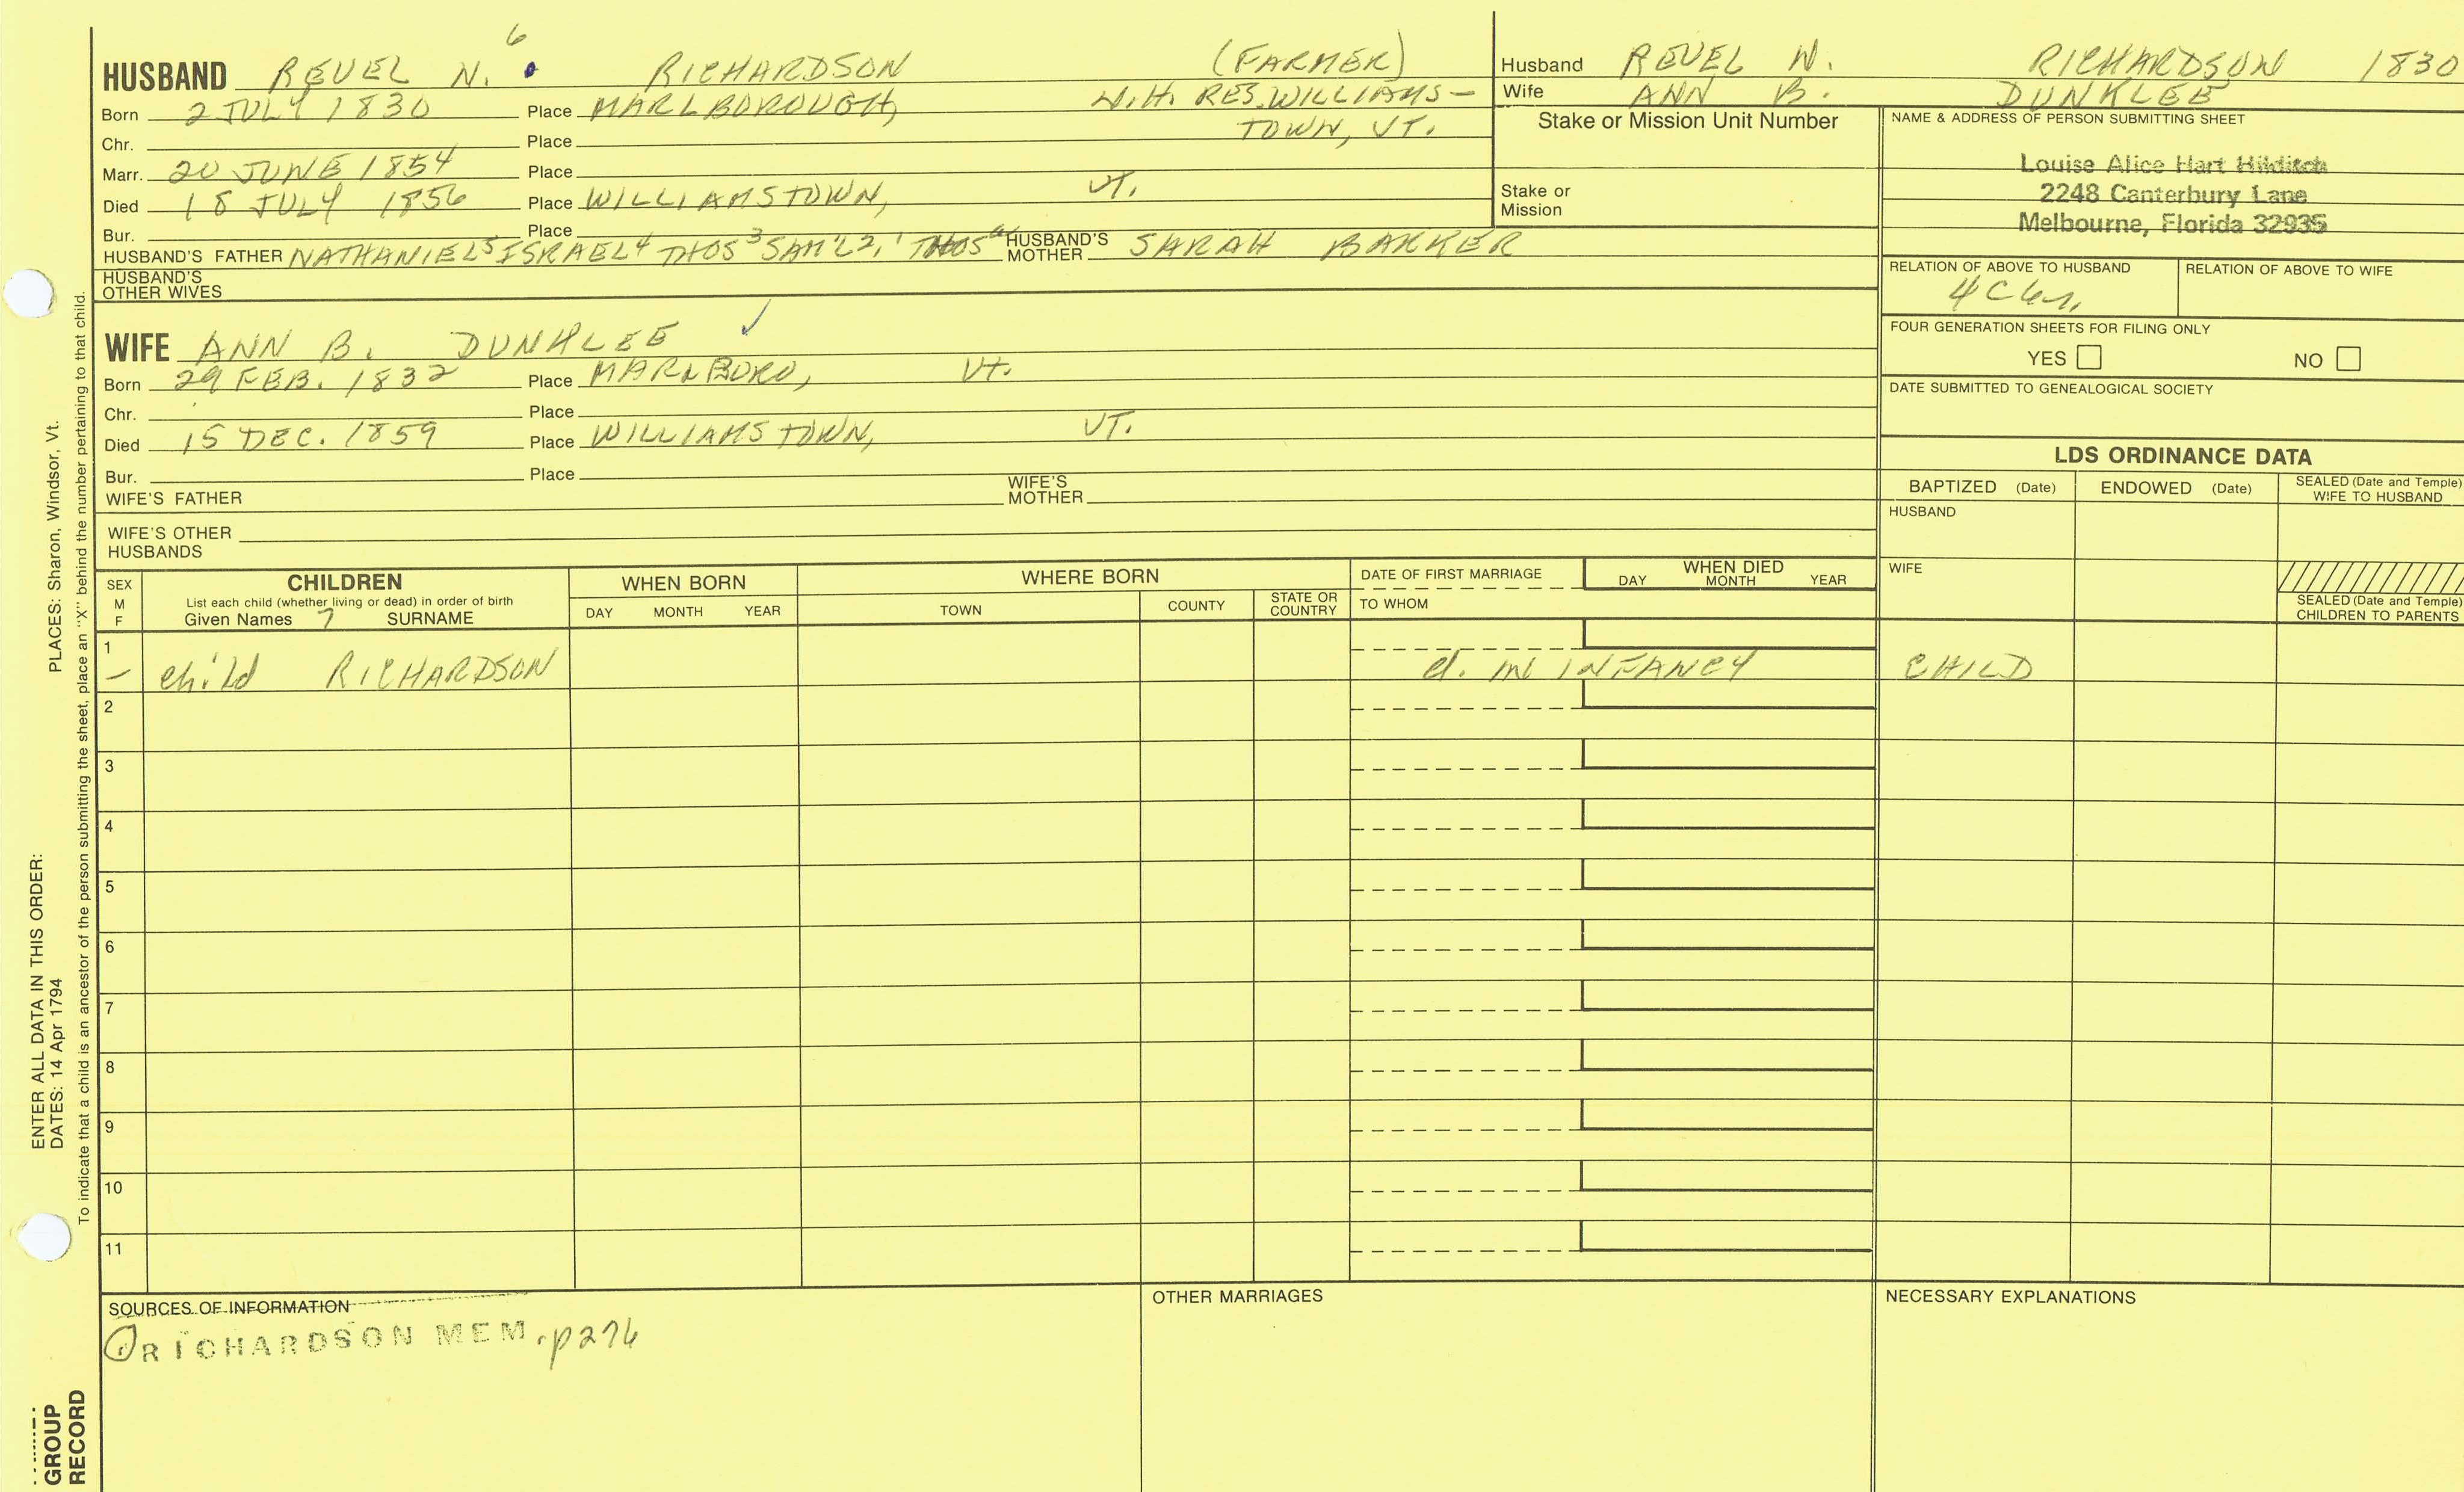 6
HUSBAND REUEL N. RICHARDSON (FARMER)
Born 2 JULY 1830 Place MARLBOROUGH, N.H. RES. WILLIAMS-
TOWN, VT.
Chr. Place
Marr. 20 JUNE 1854 Place
Died 18 JULY 1856 Place WILLIAMSTOWN, VT.
Bur. Place
HUSBAND'S FATHER NATHANIEL5 ISRAEL4 THOS3 SAM'L2, 1 THOS HUSBAND'S MOTHER SARAH BARKER
HUSBAND'S
OTHER WIVES
WIFE ANN B. DUNKLEE ✓
Born 29 FEB. 1832 Place MARLBORO, Vt.
Chr. Place
Died 15 DEC. 1859 Place WILLIAMSTOWN, VT.
Bur. Place
WIFE'S FATHER WIFE'S MOTHER
WIFE'S OTHER
HUSBANDS
Husband REUEL N. RICHARDSON 1830
Wife ANN B. DUNKLEE
Stake or Mission Unit Number
Stake or
Mission
NAME & ADDRESS OF PERSON SUBMITTING SHEET
Louise Alice Hart Hilditch
2248 Canterbury Lane
Melbourne, Florida 32935
RELATION OF ABOVE TO HUSBAND RELATION OF ABOVE TO WIFE
FOUR GENERATION SHEETS FOR FILING ONLY
YES NO
DATE SUBMITTED TO GENEALOGICAL SOCIETY
LDS ORDINANCE DATA
BAPTIZED (Date) ENDOWED (Date) SEALED (Date and Temple)
WIFE TO HUSBAND
HUSBAND
WIFE
SEALED (Date and Temple)
CHILDREN TO PARENTS
SEX
M
F
CHILDREN
List each child (whether living or dead) in order of birth
Given Names 7 SURNAME
WHEN BORN
DAY MONTH YEAR
WHERE BORN
TOWN COUNTY STATE OR
COUNTRY
DATE OF FIRST MARRIAGE
TO WHOM
WHEN DIED
DAY MONTH YEAR
1
– child RICHARDSON d. IN INFANCY CHILD
2
3
4
5
6
7
8
9
10
11
SOURCES OF INFORMATION
RICHARDSON MEM. p276
OTHER MARRIAGES
NECESSARY EXPLANATIONS
ENTER ALL DATA IN THIS ORDER:
DATES: 14 Apr 1794 PLACES: Sharon, Windsor, Vt.
To indicate that a child is an ancestor of the person submitting the sheet, place an "X" behind the number pertaining to that child.
GROUP
RECORD